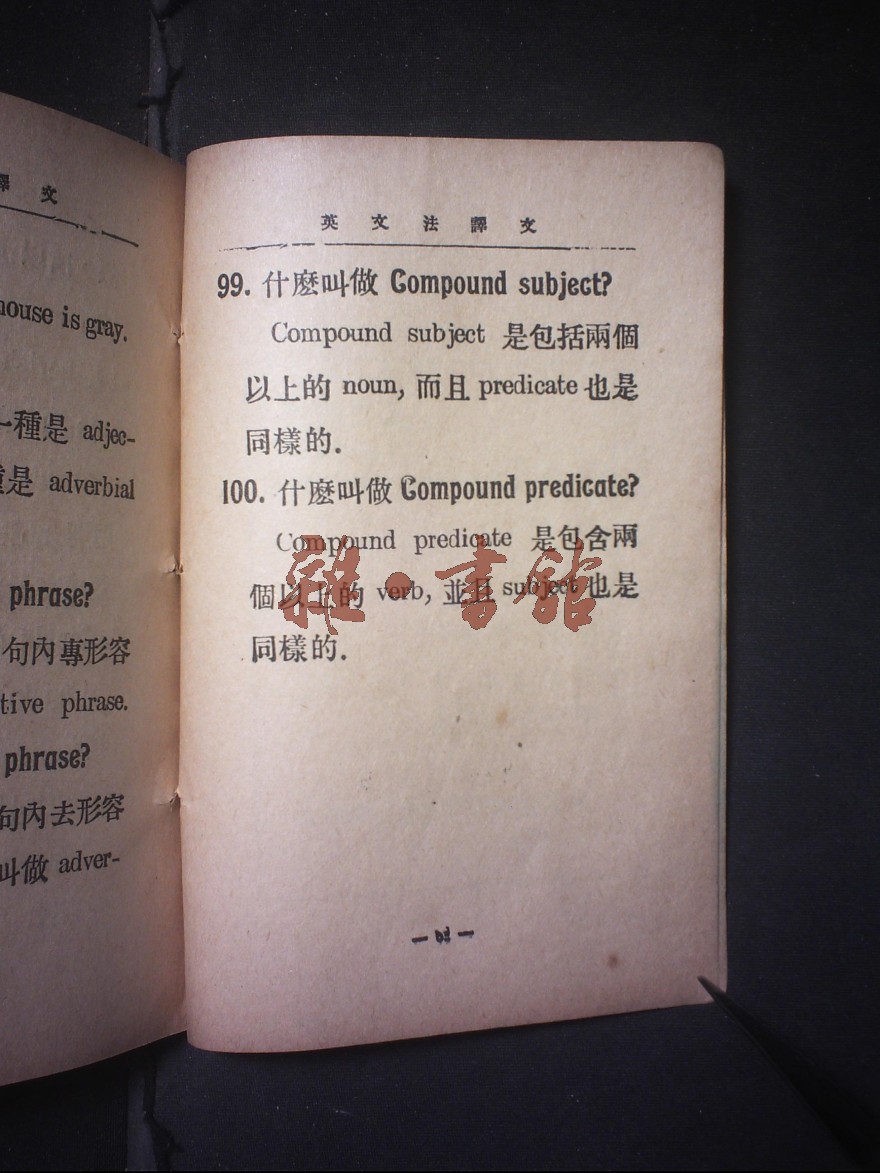 譯文
mouse is gray.
一種是 adjec-
種是 adverbial
phrase?
句內專形容
tive phrase.
phrase?
句內去形容
叫做 adver-
英文法譯文
99. 什麼叫做 Compound subject?
Compound subject 是包括兩個
以上的 noun, 而且 predicate 也是
同樣的.
100. 什麼叫做 Compound predicate?
Compound predicate 是包含兩
個以上的 verb, 並且 subject 也是
同樣的.
雜·書館